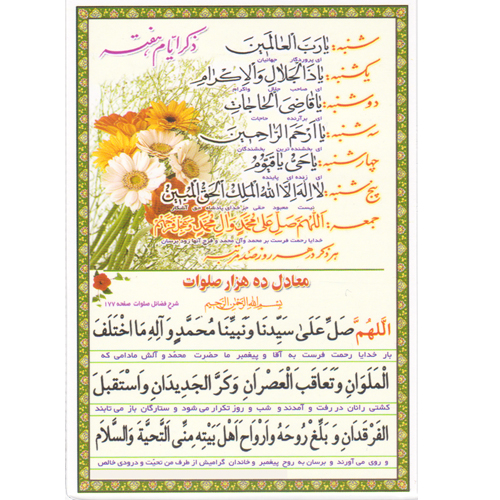 ذکر ایام هفته
شنبه: یا رَبَّ العالَمین
ای پروردگار جهانیان
یکشنبه: یا ذَالجَلالِ وَالاِکرام
ای صاحب جلال واکرام
دوشنبه: یا قاضِیَ الحاجات
ای برآرنده حاجات
سه‌شنبه: یا اَرحَمَ الرّاحِمین
ای بخشنده ترین بخشندگان
چهارشنبه: یا حَیُّ یا قَیّوم
ای زنده ای پاینده
پنج‌شنبه: لا اِلهَ اِلّا اللهُ المَلِکُ الحَقُّ المُبین
نیست معبود حقی جز خدای پادشاه حق آشکار
جمعه: اَللّهُمَّ صَلِّ عَلی مُحَمَّدٍ وَآلِ مُحَمَّدٍ وَعَجِّل فَرَجَهُم
خدایا رحمت فرست بر محمد وآل محمد و فرج آنها رود برسان
هر ذکر در هر روز صد مرتبه
معادل ده هزار صلوات
بسم الله الرحمن الرحیم
شرح فضائل صلوات صفحه ۱۷۷
اَللّهُمَّ صَلِّ عَلیٰ سَیِّدِنا وَنَبِیِّنا مُحَمَّدٍ وَآلِهِ مَا اخْتَلَفَ
بار خدایا رحمت فرست به آقا و پیغمبر ما حضرت محمّد و آلش مادامی که
الْمَلَوانِ وَتَعاقَبَ الْعَصْرانِ وَکَرَّ الْجَدیدانِ وَاسْتَقْبَلَ
کشتی رانان در رفت و آمدند و شب و روز تکرار می شود و ستارگان باز می تابند
الْفَرْقَدانِ وَبَلِّغْ رُوحَهُ وَاَرْواحَ اَهْلِ بَیْتِهِ مِنِّی التَّحِیَّةَ وَالسَّلامَ
و روی می آورند و برسان به روح پیغمبر و خاندان گرامیش از طرف من تحیّت و درودی خالص